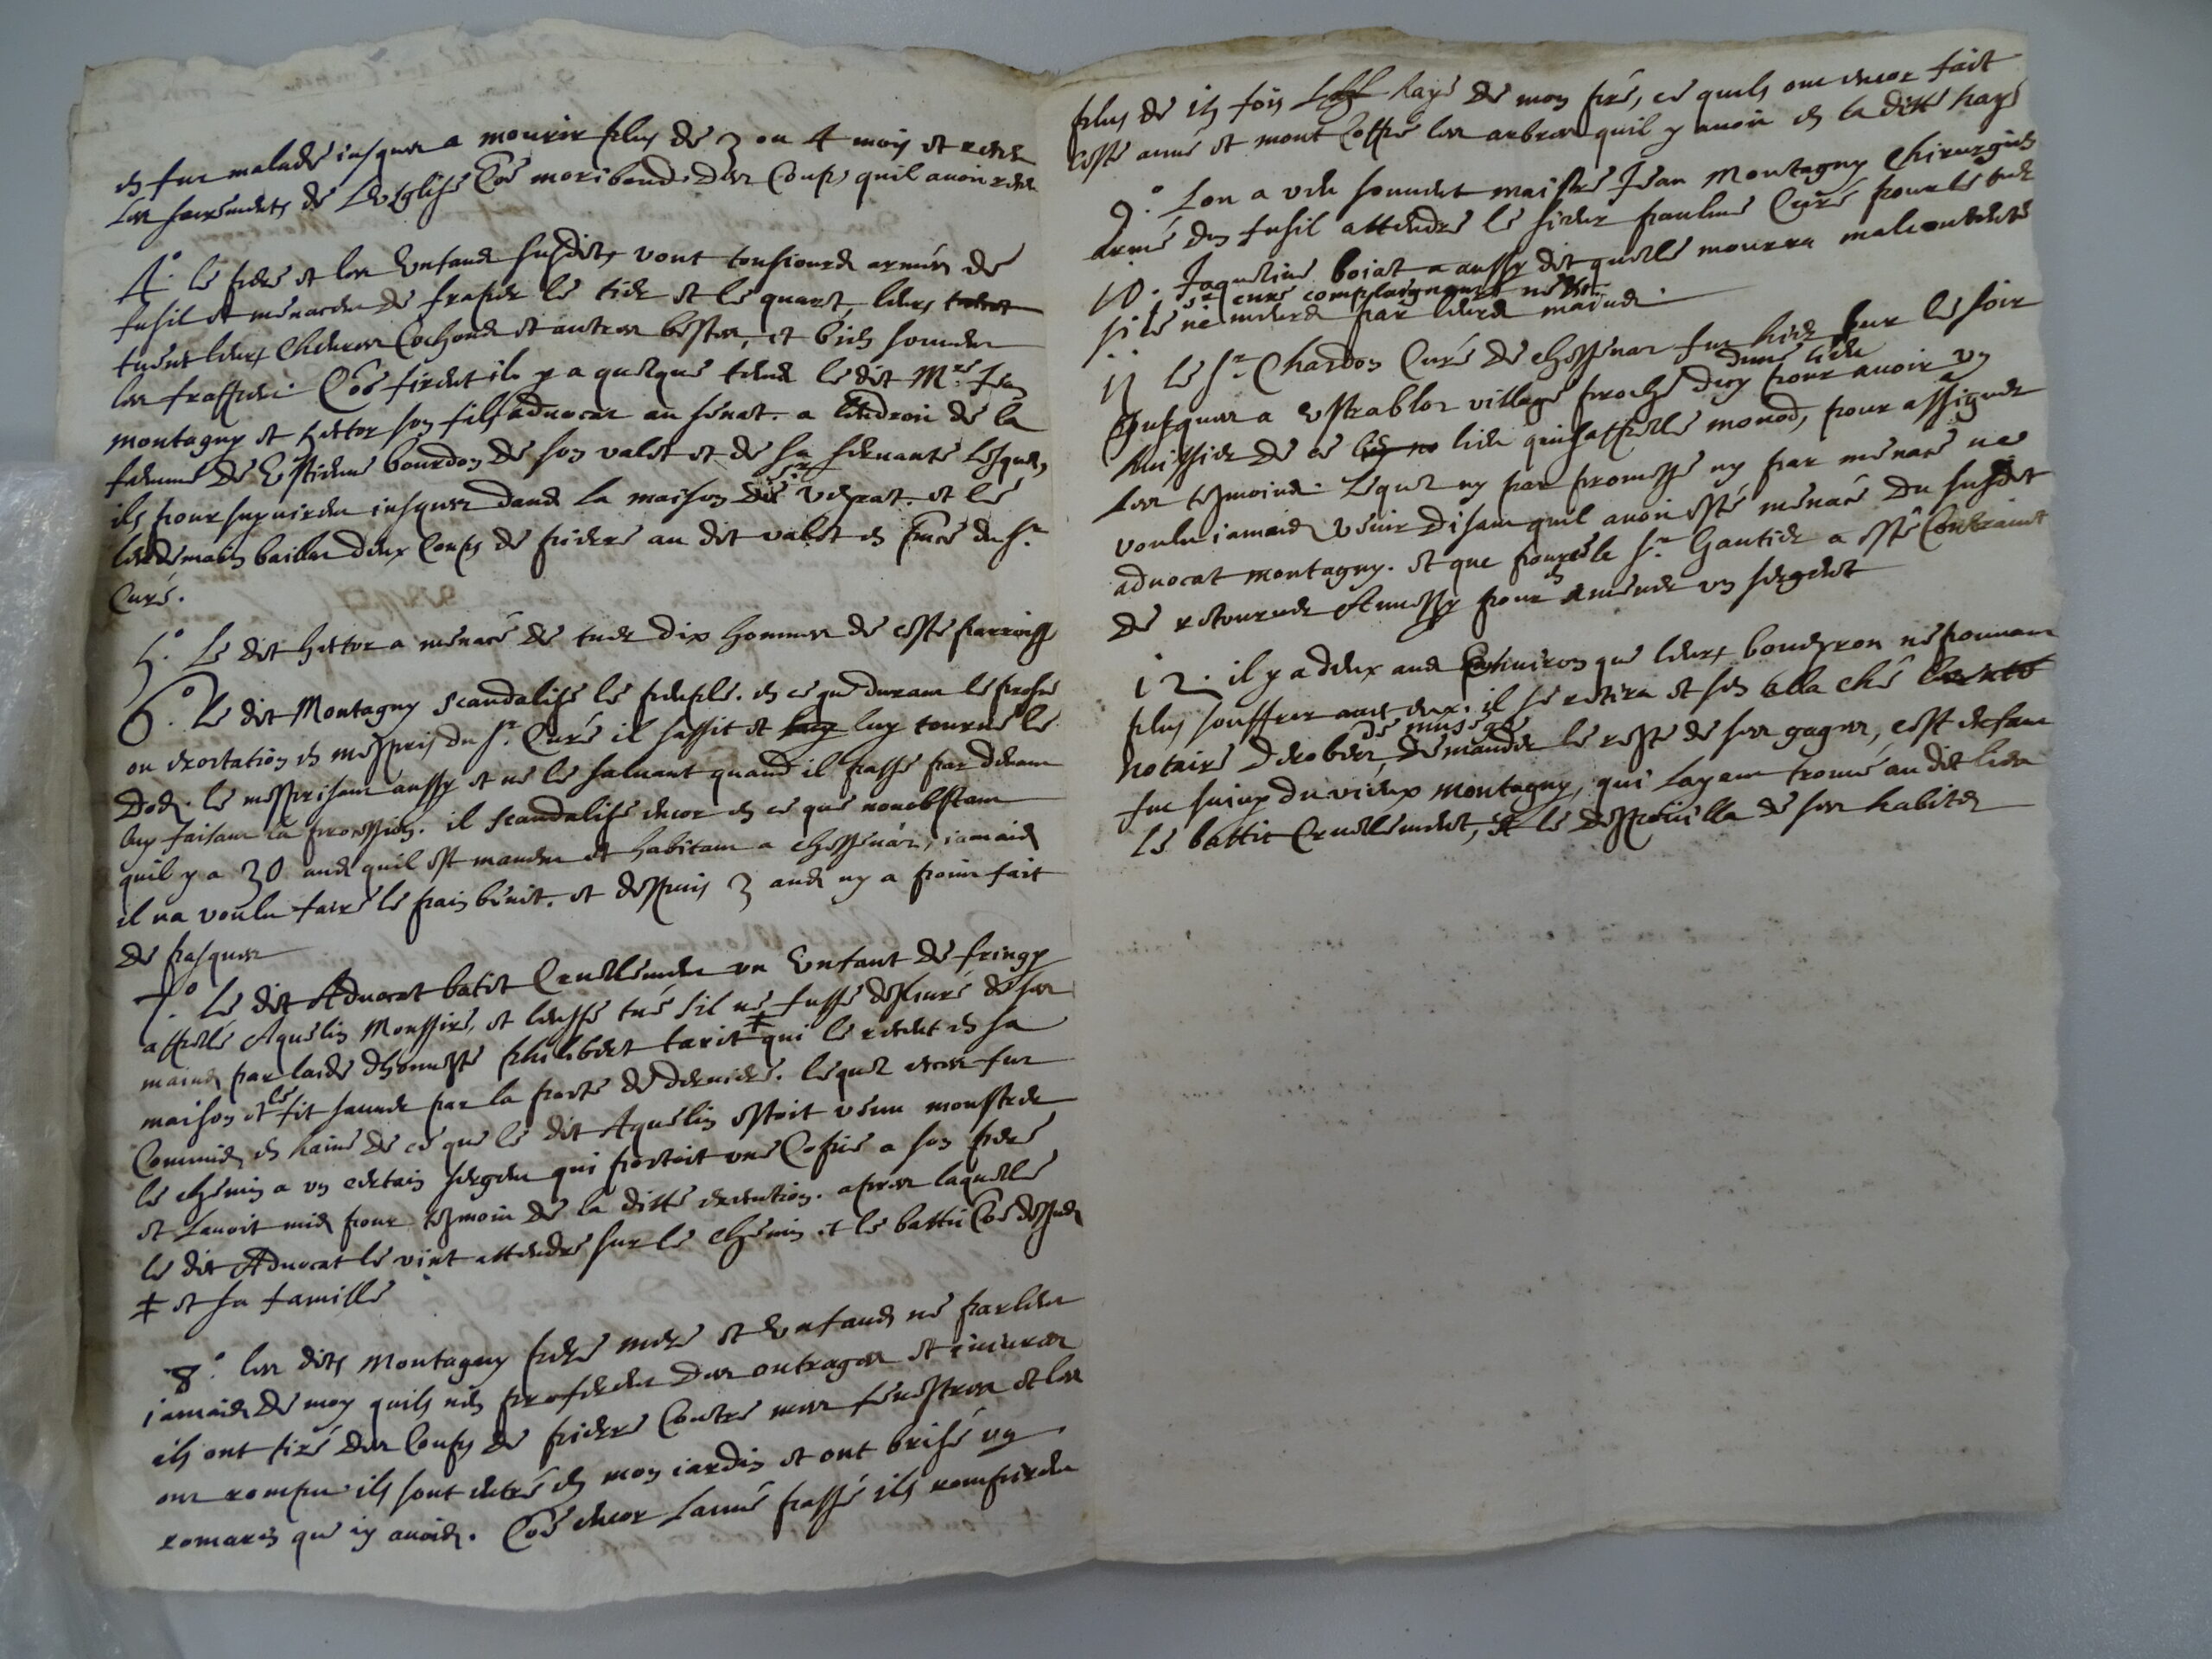 en fut malade jusques a mourir plus de 3 ou 4 mois et receu
les sacrements de Leglise Coe moribond des Coups quil avoit receu
4.° le pere et les Enfans susdits vont tousiours armés de
fusil et menacent de fraper le tier et le quart, leurs
tuent leurs chevres Cochons et autres bestes, et bien souvent
les frappent Coe firent il y a quelque temps le dit M.re Jean
montagny et hettor son fils advocat au senat. a lendroit de la
femme de Estienne bourdon de son valet et de sa servante lesquels
ils poursuyvirent jusques dans la maison du s.r vespat. et le
lendemain baillat deux Coups de pierre au dit valet en face du s.r
Curé.
5.° Le dit hettor a menacé de tuer dix hommes de ceste parroisse
6.° Le dit Montagny scandalise le peuple. en ce que durant le prosne
ou exortation en mespris du s.r Curé il sassit et luy tourne le
Dos. le mesprisant aussy et ne le saluant quand il passe par devant
luy faisant la procession. il scandalise encor en ce que nonobstant
quil y a 30 ans quil est manant et habitant a chessenaz, jamais
il na voulu faire le pain bénit. et despuis 3 ans ny a point fait
de pasques
7.° Le dit Advocat batit Cruellement un Enfant de fringy
appellé Aquelin Monssire, et leusse tué sil ne fusse deslivré de ses
mains par laide dhonneste philibert tarit ‡ qui le retint en sa
maison et le fit sauver par la porte de derniere. lequel exces fut
Commis en haine de ce que le dit Aquelin estoit venu monstrer
le chemin a un certain sergent qui portoit une Copie a son pere
et Lavoit mis pour tesmoin de la ditte execution. apres laquelle
le dit Advocat le vint attendre sur le chemin et le battit Coe dessus
‡ et sa famille
8.° les dits Montagny pere mere et Enfans ne parlent
jamais de moy quils nen proferent des outrages et injures
ils ont tiré des Coups de pierre Contre mes fenestres et les
ont rompu ils sont entré en mon jardin et ont brisé un
romarin que jy avois. Coe encor Lanné passé ils rompirent
plus de 15 fois haye de mon pré, ce quils ont encor fait
ceste anné et mont Coppé les arbres quil y avoit en la ditte haye
9.° Lon a veu souvent maistre Jean Montagny chirurgien
armé dun fusil attendre le sieur paulme Curé pour le tuer
10. Jaqueline boiat a aussy dit quelle mourra malcontente
s.r curé complaignant ne
si le ne meurt par leurs mains.
11 Le s.r Chardon Curé de chessenaz fut hier sur le soir
jusques a Estrablos village proche dicy dune lieu pour avoir un
huissier de ce lieu qui sappelle monod, pour assigner
les tesmoins. Lequel ny par promesse ny par menace na
voulu jamais venir disant quil avoit esté menacé du susdit
advocat montagny. et que pource le s.r Gautier a esté Contraint
de retourner Annessy pour en amener un sergent
12. il y a deux ans environ que leurs bouveyron ne pouvant
plus souffrir avec eux. il se retira et sen alla ché
notaire de musiege demander le reste de ses gages, cest enfant
fut suivy du vieux montagny, qui layant trouvé au dit lieu
le battit Cruellement, et le despouilla de ses habits